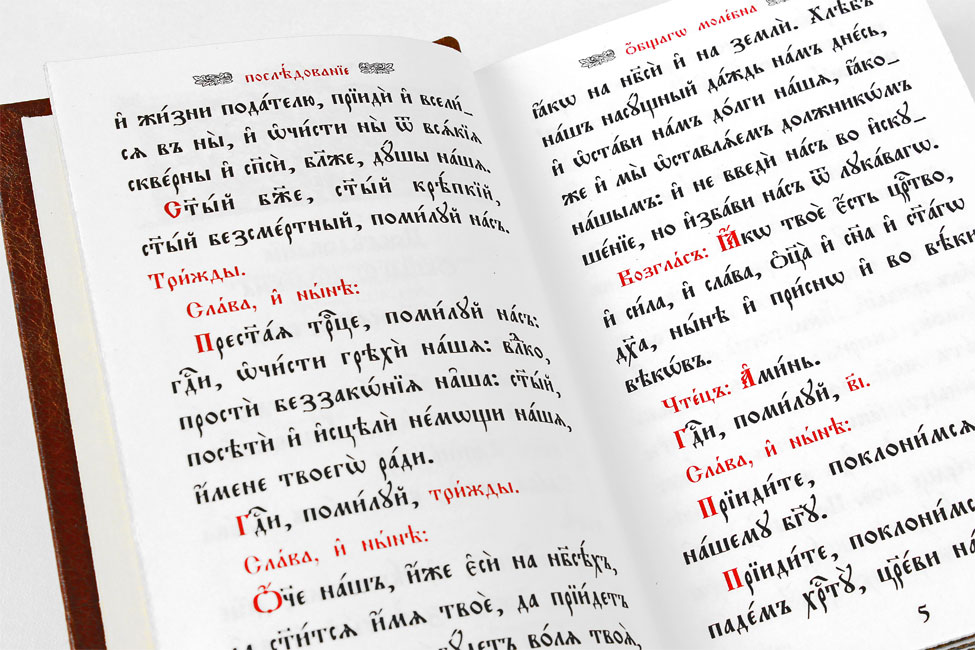 послѣ́дованїе
и҆ жи́зни пода́телю, прїидѝ и҆ всели́_
сѧ въ ны̀, и҆ ѡ҆чи́сти ны̀ ѿ всѧ́кїѧ
скве́рны и҆ спⷭ҇ѝ, бл҃же, дꙋ́шы на́шѧ.
Ст҃ы́й бж҃е, ст҃ы́й крѣ́пкїй,
ст҃ы́й безсме́ртный, поми́лꙋй на́съ.
Три́жды.
Сла́ва, и҆ ны́нѣ:
Прест҃а́ѧ трⷪ҇це, поми́лꙋй на́съ:
гдⷭ҇и, ѡ҆чи́сти грѣхѝ на́шѧ: влⷣко,
простѝ беззакѡ́нїѧ на̑ша: ст҃ы́й,
посѣтѝ и҆ и҆сцѣлѝ не́мѡщи на́шѧ,
и҆́мене твоегѡ̀ ра́ди.
Гдⷭ҇и, поми́лꙋй, три́жды.
Сла́ва, и҆ ны́нѣ:
Ѻ҆́че на́шъ, и҆́же є҆сѝ на нб҃сѣ́хъ,
ст҃и́тсѧ и҆́мѧ твоѐ, да прїи́детъ
во́лѧ твоѧ̀,
ѻ҆́бщагѡ моле́бна
ꙗ҆́кѡ на нб҃сѝ и҆ на землѝ. Хлѣ́бъ
на́шъ насꙋ́щный да́ждь на́мъ дне́сь,
и҆ ѡ҆ста́ви на́мъ до́лги на́шѧ, ꙗ҆́ко_
же и҆ мы̀ ѡ҆ставлѧ́емъ должникѡ́мъ
на́шымъ: и҆ не введѝ на́съ во и҆скꙋ_
ше́нїе, но и҆зба́ви на́съ ѿ лꙋка́вагѡ.
Возгла́съ: Ꙗ҆́кѡ твоѐ є҆́сть црⷭ҇тво,
и҆ си́ла, и҆ сла́ва, ѻ҆ц҃а̀ и҆ сн҃а и҆ ст҃а́гѡ
дх҃а, ны́нѣ и҆ при́снѡ и҆ во вѣ́ки
вѣкѡ́въ.
Чте́цъ: А҆ми́нь.
Гдⷭ҇и, поми́лꙋй, в҃і.
Сла́ва, и҆ ны́нѣ:
Прїиди́те, поклони́мсѧ
на́шемꙋ бг҃ꙋ.
Прїиди́те, поклони́мсѧ
паде́мъ хрⷭ҇тꙋ̀, цр҃е́ви
5